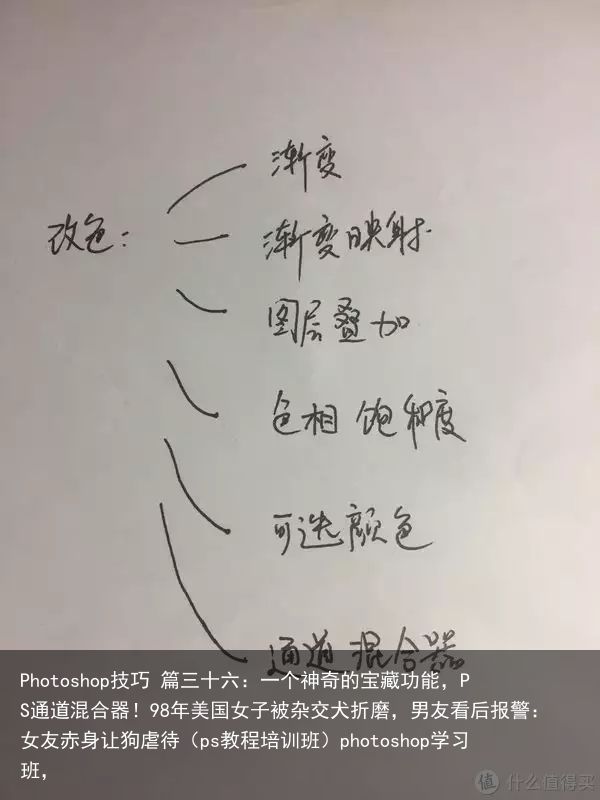 渐变
改色：
渐变映射
图层叠加
色相 饱和度
可选颜色
通道混合器
Photoshop技巧 篇三十六：一个神奇的宝藏功能，P
S通道混合器！98年美国女子被杂交犬折磨，男友看后报警：
女友赤身让狗虐待（ps教程培训班）photoshop学习
班，
值 什么值得买